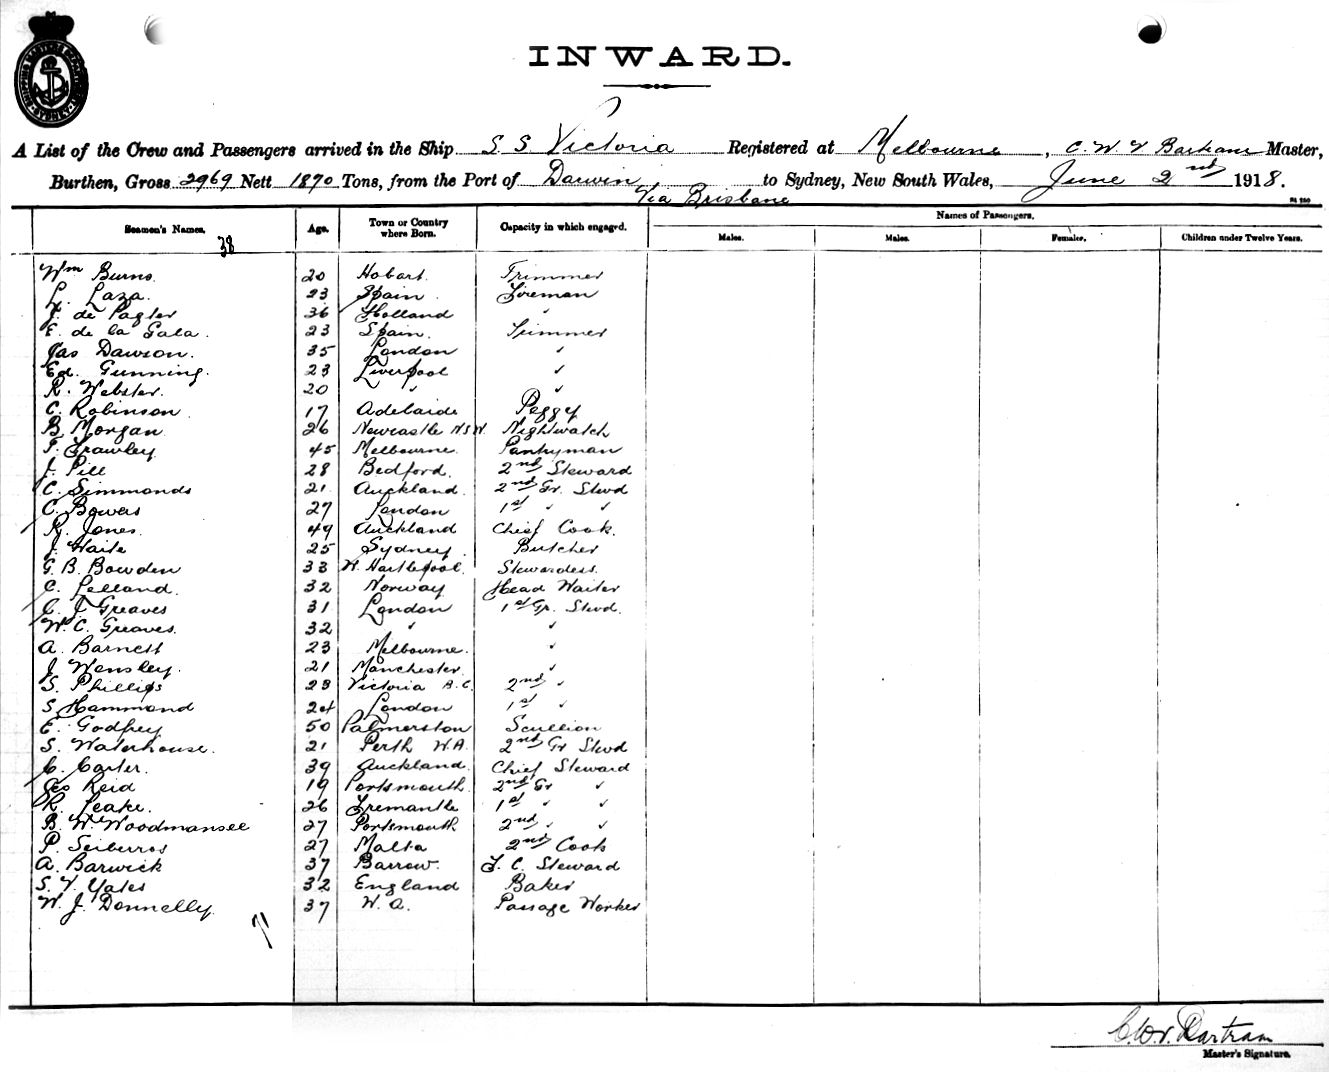 INWARD.
A List of the Crew and Passengers arrived in the Ship S. S. Victoria Registered at Melbourne, C. W. V Bartram Master,
Burthen, Gross 2969 Nett 1890 Tons, from the Port of Darwin to Sydney, New South Wales, June 2nd 1918.
Via Brisbane
Seamen's Names. Age. Town or Country where Born. Capacity in which engaged. Names of Passengers.
Males. Males. Females. Children under Twelve Years.
38
Wm Burns 20 Hobart. Trimmer
L. Laza. 23 Spain. Fireman
J. de Pagter 36 Holland "
E. de la Gala. 23 Spain. Trimmer
Jas Dawson. 35 London "
Ed. Gunning. 23 Liverpool "
R. Webster. 20 " "
C. Robinson 17 Adelaide Peggy
B. Morgan 26 Newcastle NSW. Nightwatch
T. Frawley 45 Melbourne. Pantryman
J. Pill 28 Bedford. 2nd Steward
C. Simmonds 21 Auckland. 2nd Gr. Stwd
C. Bowers 27 London 1st " "
R. Jones. 49 Auckland Chief Cook.
J. Waite 25 Sydney. Butcher
G. B. Bowden 33 W. Hartlepool. Stewardess.
C. Lelland. 32 Norway Head Waiter
C. J Greaves 31 London 1st Gr. Stwd.
W. C. Greaves. 32 " "
A. Barnett 23 Melbourne. "
J. Wensley. 21 Manchester. "
S. Phillips 28 Victoria B.C. 2nd "
S. Hammond 24 London 1st "
E. Godfrey 50 Palmerston Scullion
S. Waterhouse. 21 Perth W.A. 2nd Gr Stwd
C. Carter. 39 Auckland. Chief Steward
Geo Reid 19 Portsmouth. 2nd Gr "
R. Peake. 26 Fremantle 1st " "
B. W. Woodmansee 27 Portsmouth 2nd " "
P. Seiburros 27 Malta 2nd Cook
A. Barwick 37 Barrow. F. C. Steward
S. V. Yates 32 England Baker
W. J. Donnelly. 37 W. A. Passage Worker
C.W.V. Bartram
Master's Signature.